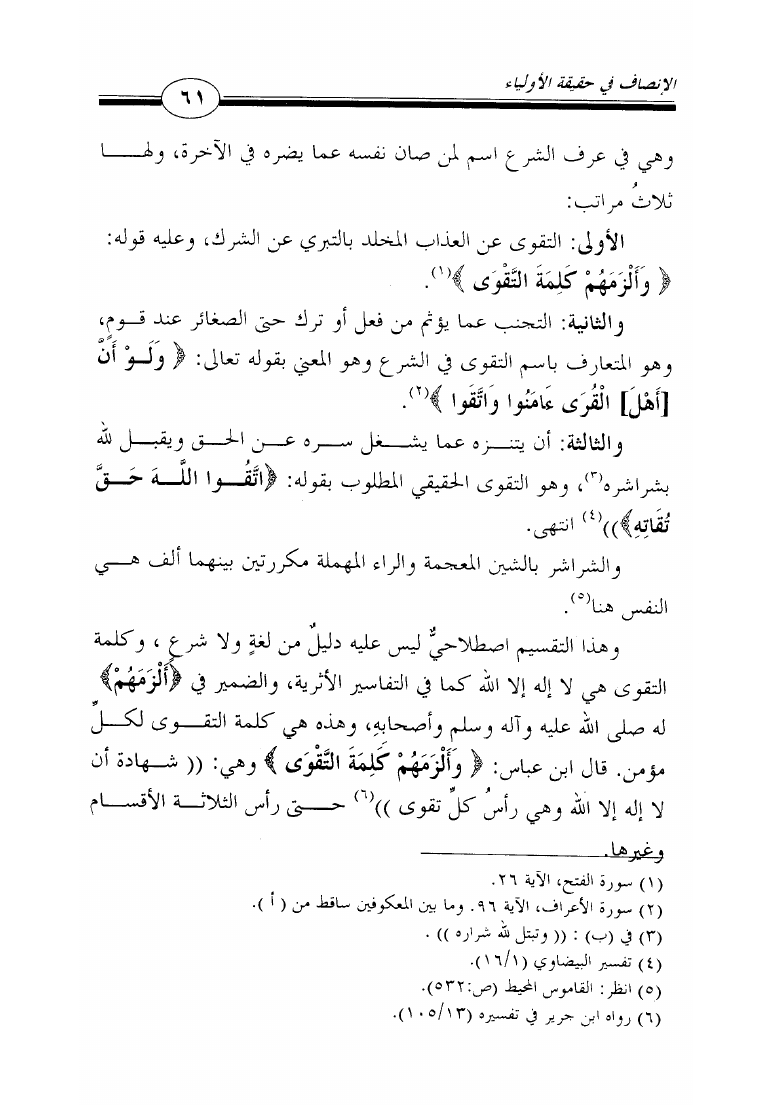 الإنصاف في حقيقة الأولياء
٦١
وهي في عرف الشرع اسم لمن صان نفسه عما يضره في الآخرة، ولهـــــا
ثلاثُ مراتب:
الأولى: التقوى عن العذاب المخلد بالتبري عن الشرك، وعليه قوله:
﴿ وَأَلْزَمَهُمْ كَلِمَةَ التَّقْوَى ﴾(١).
والثانية: التجنب عما يؤثم من فعل أو ترك حتى الصغائر عند قــوم،
وهو المتعارف باسم التقوى في الشرع وهو المعني بقوله تعالى: ﴿ وَلَــوْ أَنَّ
[أَهْلَ] الْقُرَى ءَامَنُوا وَاتَّقَوا ﴾(٢).
والثالثة: أن يتنـــزه عما يشـــغل ســـره عـــن الحـــق ويقبـــل لله
بشراشره(٣)، وهو التقوى الحقيقي المطلوب بقوله: ﴿اتَّقُـــوا اللَّـــهَ حَـــقَّ
تُقَاتِهِ﴾))(٤) انتهى.
والشراشر بالشين المعجمة والراء المهملة مكررتين بينهما ألف هـــي
النفس هنا(٥).
وهذا التقسيم اصطلاحيٌّ ليس عليه دليلٌ من لغةٍ ولا شرعٍ ، وكلمة
التقوى هي لا إله إلا الله كما في التفاسير الأثرية، والضمير في ﴿أَلْزَمَهُمْ﴾
له صلى الله عليه وآله وسلم وأصحابهِ، وهذه هي كلمة التقـــوى لكـــلِّ
مؤمن. قال ابن عباس: ﴿ وَأَلْزَمَهُمْ كَلِمَةَ التَّقْوَى ﴾ وهي: (( شـــهادة أن
لا إله إلا الله وهي رأسُ كلِّ تقوى ))(٦) حـــتى رأس الثلاثـــة الأقســـام
وغيرها.
(١) سورة الفتح، الآية ٢٦.
(٢) سورة الأعراف، الآية ٩٦. وما بين المعكوفين ساقط من ( أ ).
(٣) في (ب) : (( وتبتل لله شراره )) .
(٤) تفسير البيضاوي (١٦/١).
(٥) انظر: القاموس المحيط (ص:٥٣٢).
(٦) رواه ابن جرير في تفسيره (١٠٥/١٣).